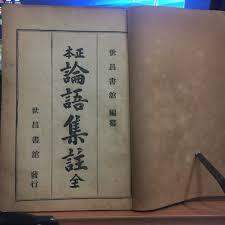 世昌書館 編纂
正本 論語集註 全
世昌書館 發行